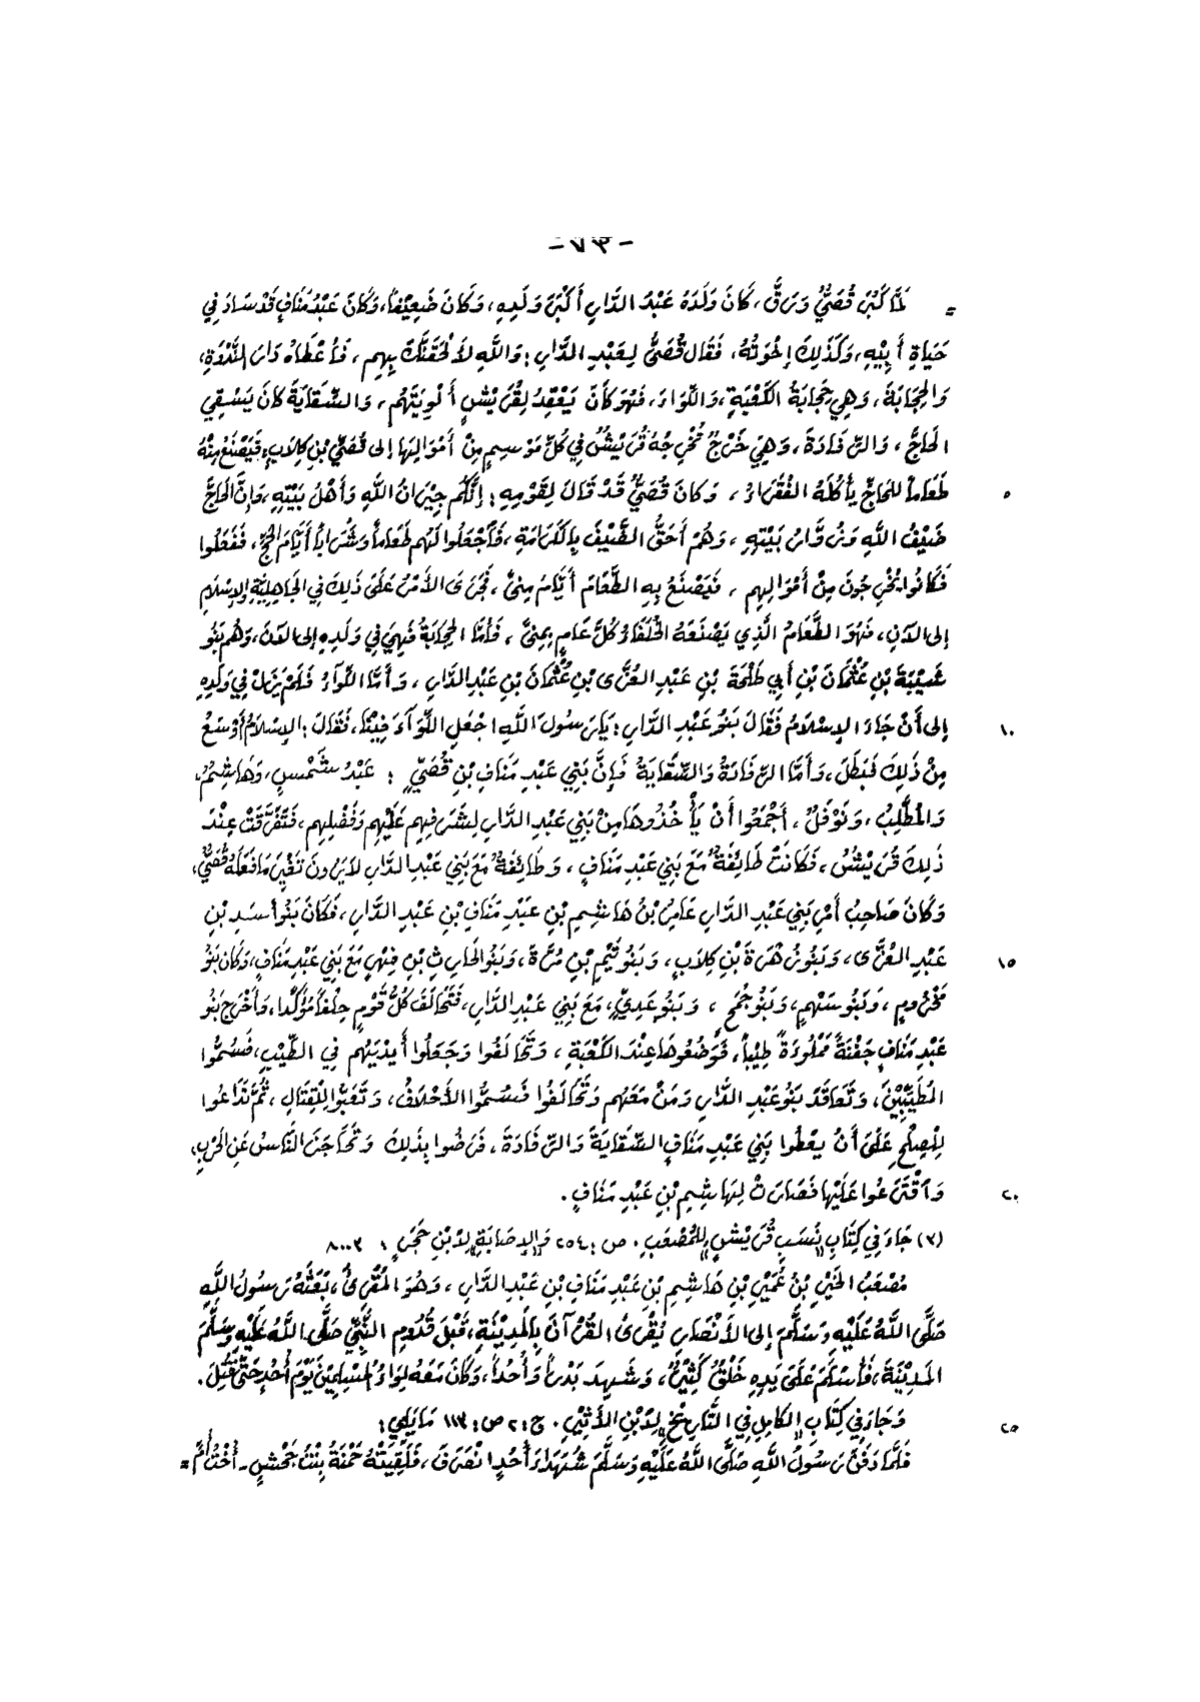 -٧٣-
= لَمَّا كَبُرَ قُصَيٌّ وَرَقَّ، كَانَ وَلَدُهُ عَبْدُ الدَّارِ أَكْبَرَ وَلَدِهِ، وَكَانَ ضَعِيفًا، وَكَانَ عَبْدُ مَنَافٍ قَدْ سَادَ فِي
حَيَاةِ أَبِيهِ، وَكَذٰلِكَ إِخْوَتُهُ، فَقَالَ قُصَيٌّ لِعَبْدِ الدَّارِ: وَاللّٰهِ لَأُلْحِقَنَّكَ بِهِم، فَأَعْطَاهُ دَارَ النَّدْوَةِ،
وَالحِجَابَةَ، وَهِيَ حِجَابَةُ الكَعْبَةِ، وَاللِّوَاءَ، فَهُوَ كَانَ يَعْقِدُ لِقُرَيْشٍ أَلْوِيَتَهُم، وَالسِّقَايَةَ كَانَ يَسْقِي
الحَاجَّ، وَالرِّفَادَةَ، وَهِيَ خَرْجٌ تُخْرِجُهُ قُرَيْشٌ فِي كُلِّ مَوْسِمٍ مِنْ أَمْوَالِهَا إِلى قُصَيِّ بْنِ كِلَابٍ، فَيَصْنَعُ مِنْهُ
طَعَاماً لِلحَاجِّ يَأْكُلُهُ الفُقَرَاءُ، وَكَانَ قُصَيٌّ قَدْ قَالَ لِقَوْمِهِ: إِنَّكُم جِيْرَانُ اللّٰهِ وَأَهْلُ بَيْتِهِ، وَإِنَّ الحَاجَّ ٥
ضَيْفُ اللّٰهِ وَزُوَّارُ بَيْتِهِ، وَهُمْ أَحَقُّ الضَّيْفِ بِالكَرَامَةِ، فَاجْعَلُوا لَهُم طَعَاماً وَشَرَاباً أَيَّامَ الحَجِّ، فَفَعَلُوا
فَكَانُوا يُخْرِجُونَ مِنْ أَمْوَالِهِم، فَيَصْنَعُ بِهِ الطَّعَامَ أَيَّامَ مِنىً، فَجَرَى الأَمْرُ عَلَى ذٰلِكَ فِي الجَاهِلِيَّةِ وَالإِسْلَامِ
إِلى الآنِ، فَهُوَ الطَّعَامُ الَّذِي يَصْنَعُهُ الخُلَفَاءُ كُلَّ عَامٍ بِمِنىً، فَأَمَّا الحِجَابَةُ فَهِيَ فِي وَلَدِهِ إِلى الآنَ، وَهُم بَنُو
شَيْبَةَ بْنِ عُثْمَانَ بْنِ أَبِي طَلْحَةَ بْنِ عَبْدِ العُزَّى بْنِ عُثْمَانَ بْنِ عَبْدِ الدَّارِ، وَأَمَّا اللِّوَاءُ فَلَمْ يَزَلْ فِي وَلَدِهِ
إِلى أَنْ جَاءَ الإِسْلَامُ فَقَالَ بَنُو عَبْدِ الدَّارِ: يَا رَسُولَ اللّٰهِ اجْعَلِ اللِّوَاءَ فِيْنَا، فَقَالَ: الإِسْلَامُ أَوْسَعُ ١٠
مِنْ ذٰلِكَ فَبَطَلَ، وَأَمَّا الرِّفَادَةُ وَالسِّقَايَةُ فَإِنَّ بَنِي عَبْدِ مَنَافِ بْنِ قُصَيٍّ: عَبْدُ شَمْسٍ، وَهَاشِمٌ،
وَالمُطَّلِبُ، وَنَوْفَلٌ، أَجْمَعُوا أَنْ يَأْخُذُوهَا مِنْ بَنِي عَبْدِ الدَّارِ لِشَرَفِهِم عَلَيْهِم وَفَضْلِهِم، فَتَفَرَّقَتْ عِنْدَ
ذٰلِكَ قُرَيْشٌ، فَكَانَتْ طَائِفَةٌ مَعَ بَنِي عَبْدِ مَنَافٍ، وَطَائِفَةٌ مَعَ بَنِي عَبْدِ الدَّارِ لَا يَرَونَ تَغْيِيرَ مَا فَعَلَهُ قُصَيٌّ،
وَكَانَ صَاحِبُ أَمْرِ بَنِي عَبْدِ الدَّارِ عَامِرُ بْنُ هَاشِمِ بْنِ عَبْدِ مَنَافِ بْنِ عَبْدِ الدَّارِ، فَكَانَ بَنُو أَسَدِ بْنِ
عَبْدِ العُزَّى، وَبَنُو زُهْرَةَ بْنِ كِلَابٍ، وَبَنُو تَيْمِ بْنِ مُرَّةَ، وَبَنُو الحَارِثِ بْنِ فِهْرٍ مَعَ بَنِي عَبْدِ مَنَافٍ، وَكَانَ بَنُو ١٥
مَخْزُومٍ، وَبَنُو سَهْمٍ، وَبَنُو جُمَحٍ، وَبَنُو عَدِيٍّ، مَعَ بَنِي عَبْدِ الدَّارِ، فَتَحَالَفَ كُلُّ قَوْمٍ حِلْفاً مُؤَكَّداً، وَأَخْرَجَ بَنُو
عَبْدِ مَنَافٍ جَفْنَةً مَمْلُوءَةً طِيْباً، فَوَضَعُوهَا عِنْدَ الكَعْبَةِ، وَتَحَالَفُوا وَجَعَلُوا أَيْدِيَهُم فِي الطِّيْبِ، فَسُمُّوا
المُطَيَّبِيْنَ، وَتَعَاقَدَ بَنُو عَبْدِ الدَّارِ وَمَنْ مَعَهُم وَتَحَالَفُوا فَسُمُّوا الأَحْلَافَ، وَتَعَبَّوا لِلْقِتَالِ، ثُمَّ تَدَاعُوا
لِلْصلْحِ عَلَى أَنْ يعْطُوا بَنِي عَبْدِ مَنَافٍ السِّقَايَةَ وَالرِّفَادَةَ، فَرَضُوا بِذٰلِكَ وَتَحَاجَزَ النَّاسُ عَنِ الحَرْبِ،
وَاقْتَرَعُوا عَلَيْهَا فَصَارَتْ لِهَاشِمِ بْنِ عَبْدِ مَنَافٍ. ٢٠
(٢) جَاءَ فِي كِتَابِ „نَسَبِ قُرَيْشٍ“ لِلمُصْعَبِ. ص: ٢٥٤ وَ„الإِصَابَةِ“ لِابْنِ حَجَرٍ: ٨٠٠٣
مُصْعَبُ الخَيْرِ بْنُ عُمَيْرِ بْنِ هَاشِمِ بْنِ عَبْدِ مَنَافِ بْنِ عَبْدِ الدَّارِ، وَهُوَ المُقْرِئُ، بَعَثَهُ رَسُولُ اللّٰهِ
صَلَّى اللّٰهُ عَلَيْهِ وَسَلَّمَ إِلى الأَنْصَارِ يُقْرِئُ القُرْآنَ بِالمَدِيْنَةِ، قَبْلَ قُدُومِ النَّبِيِّ صَلَّى اللّٰهُ عَلَيْهِ وَسَلَّمَ
المَدِيْنَةَ، فَأَسْلَمَ عَلَى يَدِهِ خَلْقٌ كَثِيْرٌ، وَشَهِدَ بَدْراً وَأُحُداً، وَكَانَ مَعَهُ لِوَاءُ المُسْلِمِيْنَ يَوْمَ أُحُدٍ حَتَّى قُتِلَ.
وَجَاءَ فِي كِتَابِ „الكَامِلِ فِي التَّارِيْخِ“ لِابْنِ الأَثِيْرِ. ج: ٢ ص: ١١٣ مَا يَلِي: ٢٥
فَلَمَّا دَفَنَ رَسُولُ اللّٰهِ صَلَّى اللّٰهُ عَلَيْهِ وَسَلَّمَ شُهَدَاءَ أُحُدٍ انْصَرَفَ، فَلَقِيَتْهُ حَمْنَةُ بِنْتُ جَحْشٍ - أُخْتُ أُمِّ =